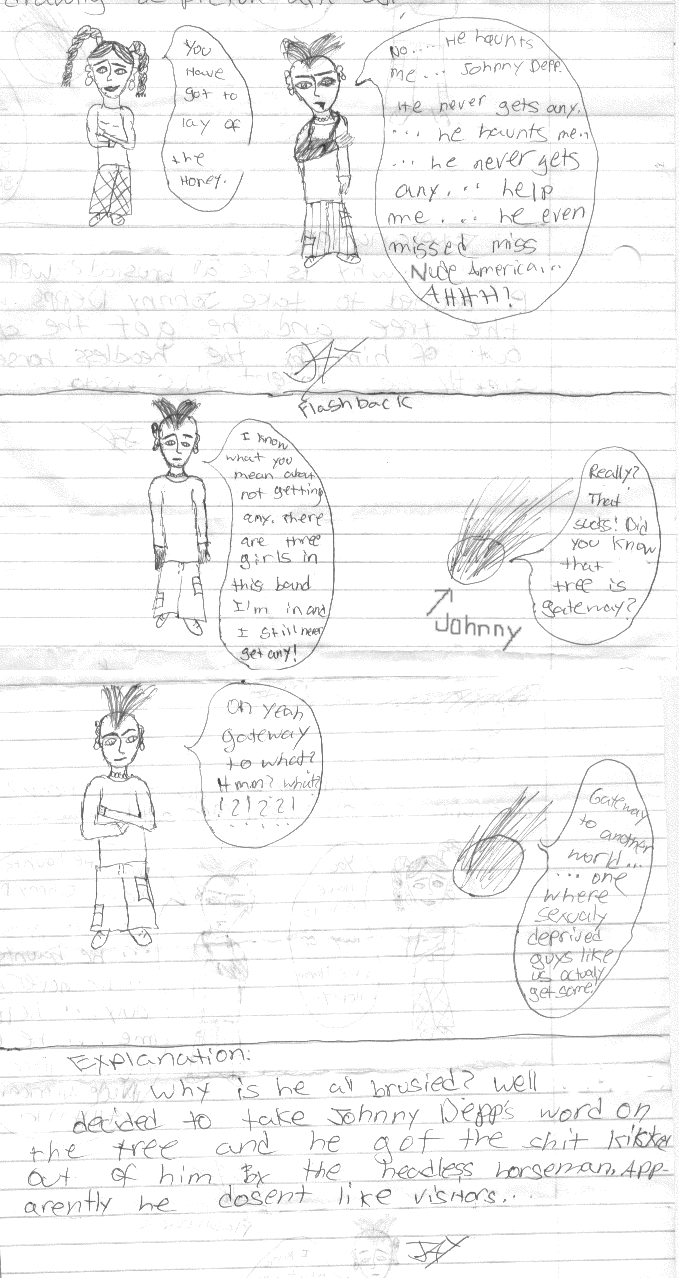 You
Have
got to
lay of
the
Honey.
No.... He haunts
me... Johnny Depp.
He never gets any.
... he haunts me..
... he never gets
any... help
me... he even
missed miss
Nude America...
AHHH!
Flashback
I know
what you
mean about
not getting
any. There
are three
girls in
this band
I'm in and
I still never
get any!
Really?
That
sucks! Did
you know
that
tree is
gateway?
Johnny
Oh yeah
gateway
to what?
Hmm? what?
!?!?!?!
Gateway
to another
world...
... one
where
sexualy
deprived
guys like
us actualy
get some!
Explanation:
Why is he all brusied? well
decided to take Johnny Depp's word on
the tree and he got the shit kikked
out of him by the headless horseman. App-
arently he dosent like visitors...